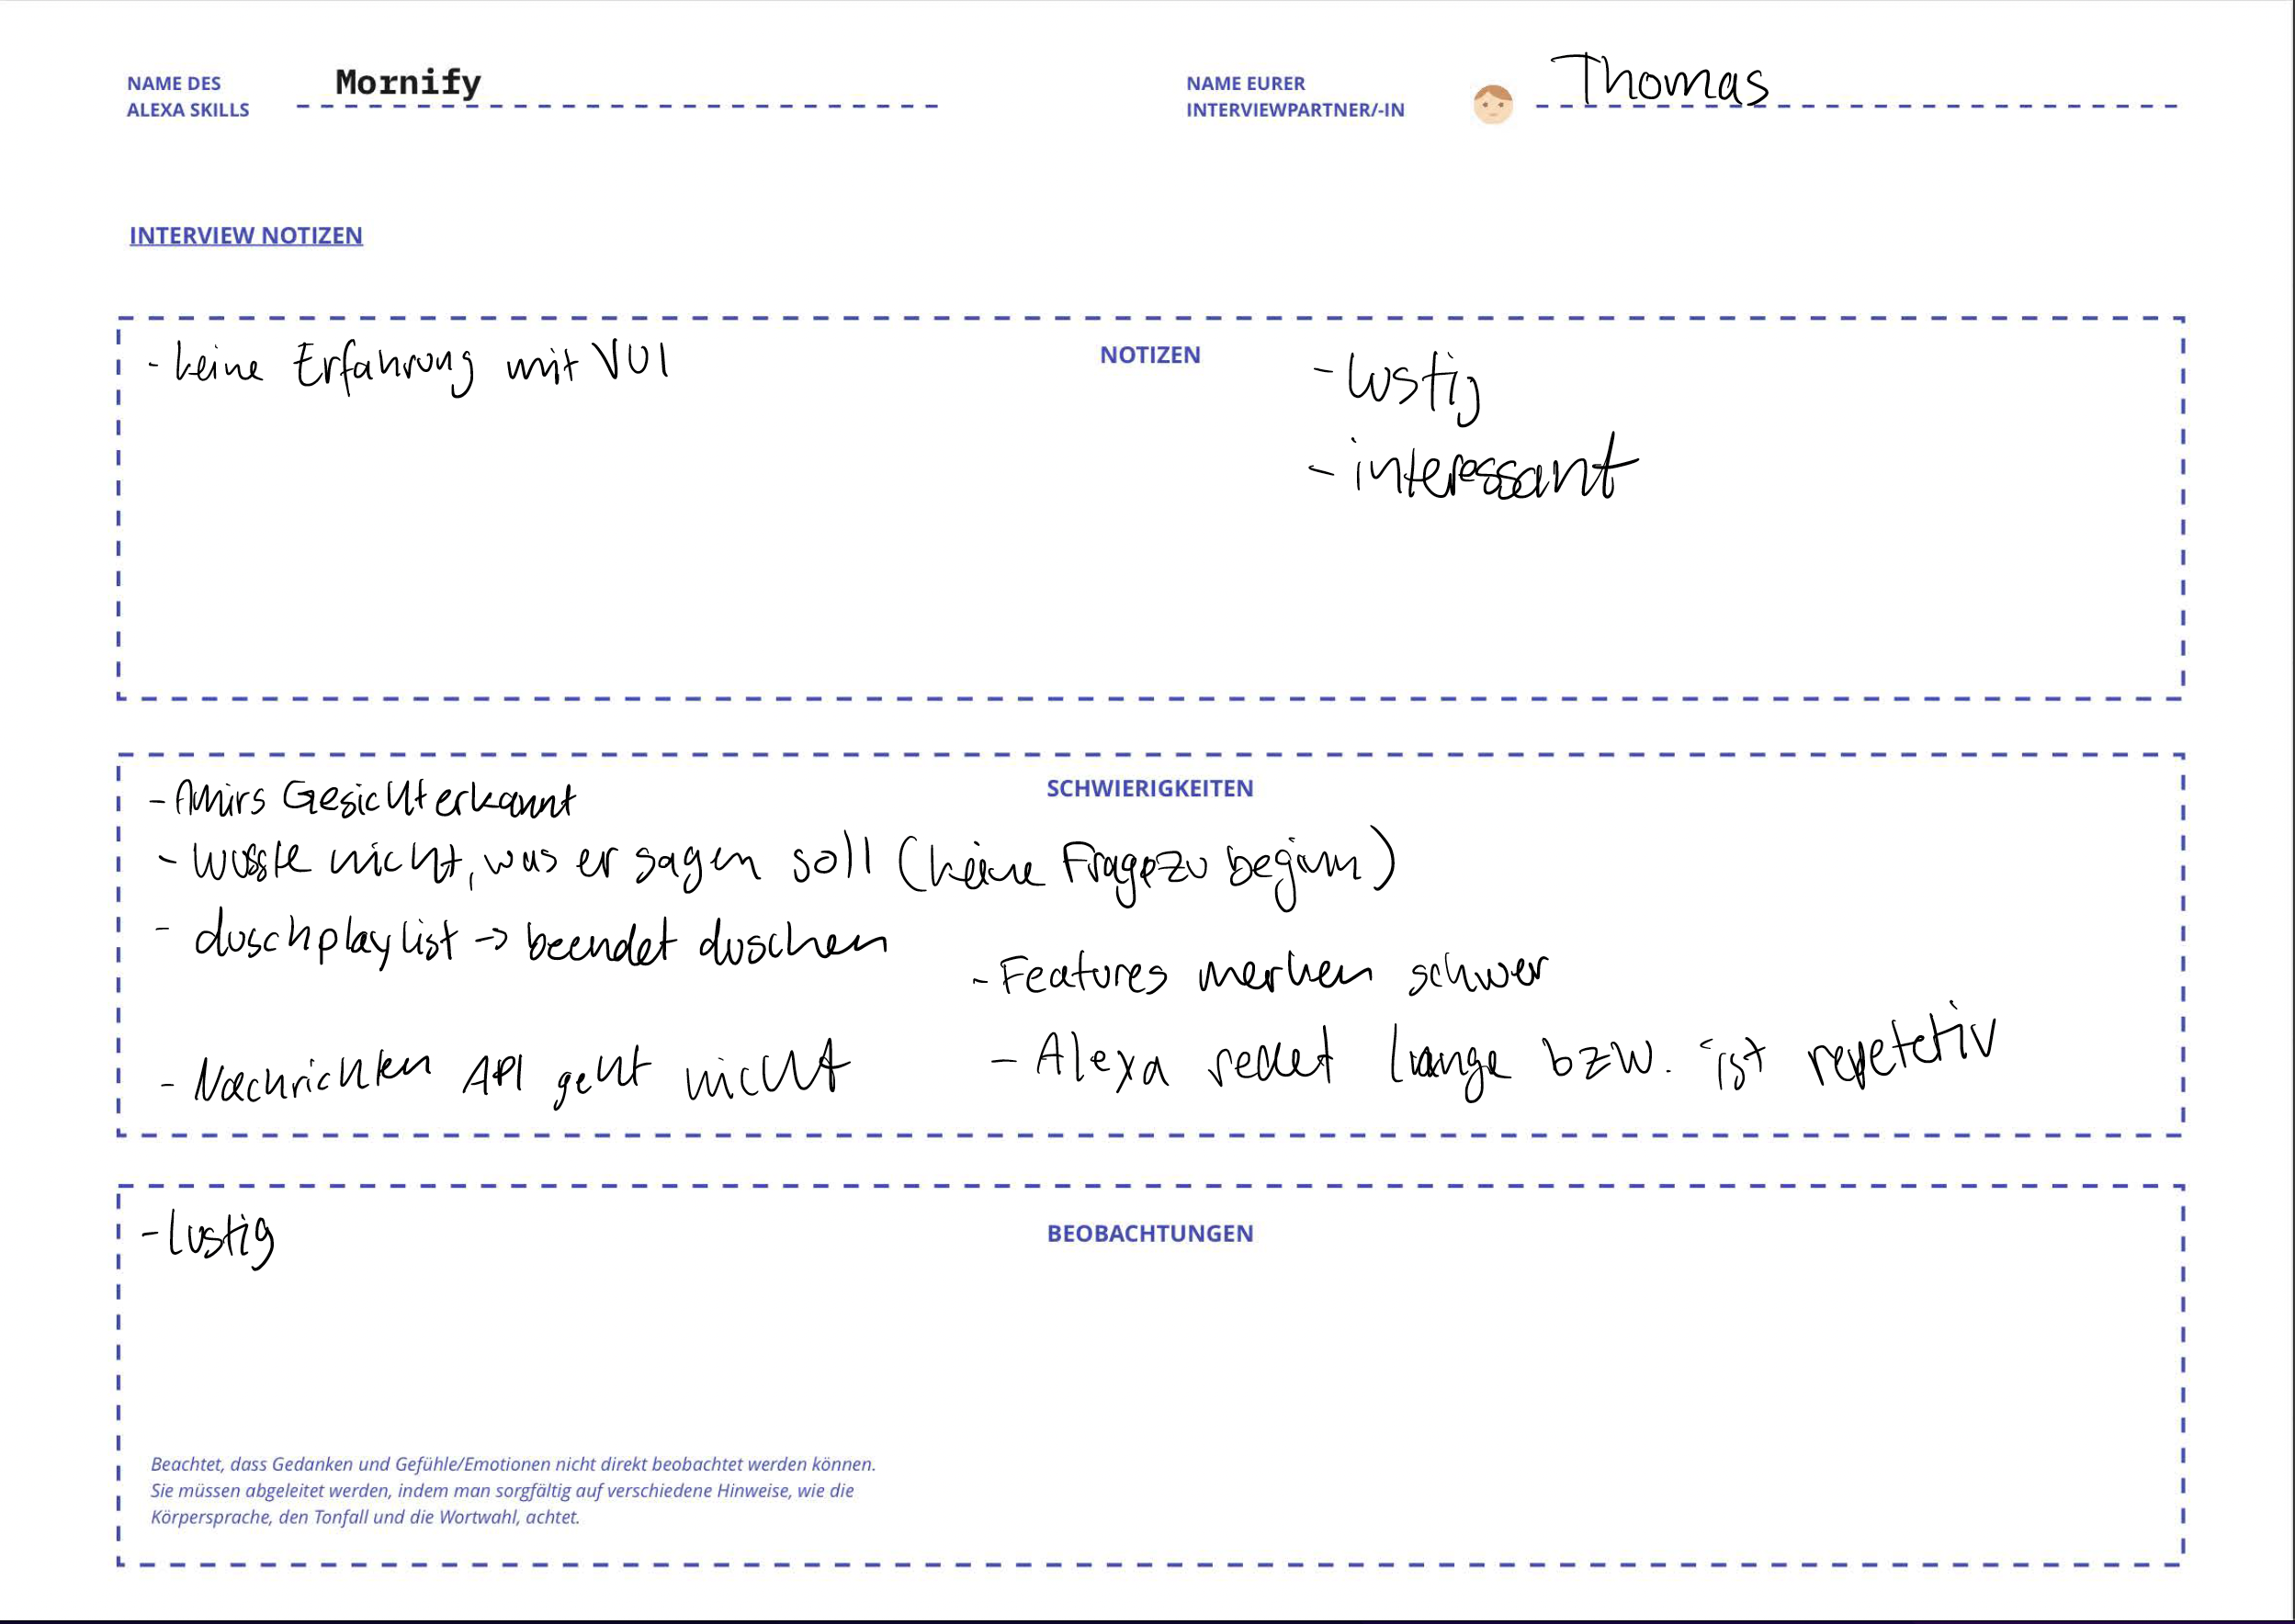 NAME DES
ALEXA SKILLS
Mornify
NAME EURER
INTERVIEWPARTNER/-IN
Thomas
INTERVIEW NOTIZEN
NOTIZEN
- keine Erfahrung mit VUI
- lustig
- interessant
SCHWIERIGKEITEN
- Amirs Gesicht erkannt
- wusste nicht, was er sagen soll (keine Frage zu beginn)
- duschplaylist -> beendet duschen
- Features merken schwer
- Nachrichten API geht nicht
- Alexa redet lange bzw. ist repetetiv
BEOBACHTUNGEN
- lustig
Beachtet, dass Gedanken und Gefühle/Emotionen nicht direkt beobachtet werden können.
Sie müssen abgeleitet werden, indem man sorgfältig auf verschiedene Hinweise, wie die
Körpersprache, den Tonfall und die Wortwahl, achtet.